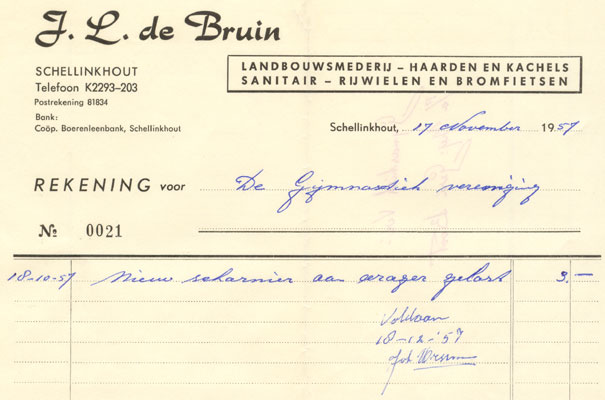 J. L. de Bruin
SCHELLINKHOUT
Telefoon K2293-203
Postrekening 81834
Bank:
Coöp. Boerenleenbank, Schellinkhout
LANDBOUWSMEDERIJ – HAARDEN EN KACHELS
SANITAIR – RIJWIELEN EN BROMFIETSEN
Schellinkhout, 17 November 1957
REKENING voor De Gijmnastiek vereniging
№ 0021
18-10-57 Nieuw scharnier aan gelast 3.-
Voldaan
18-12-'57